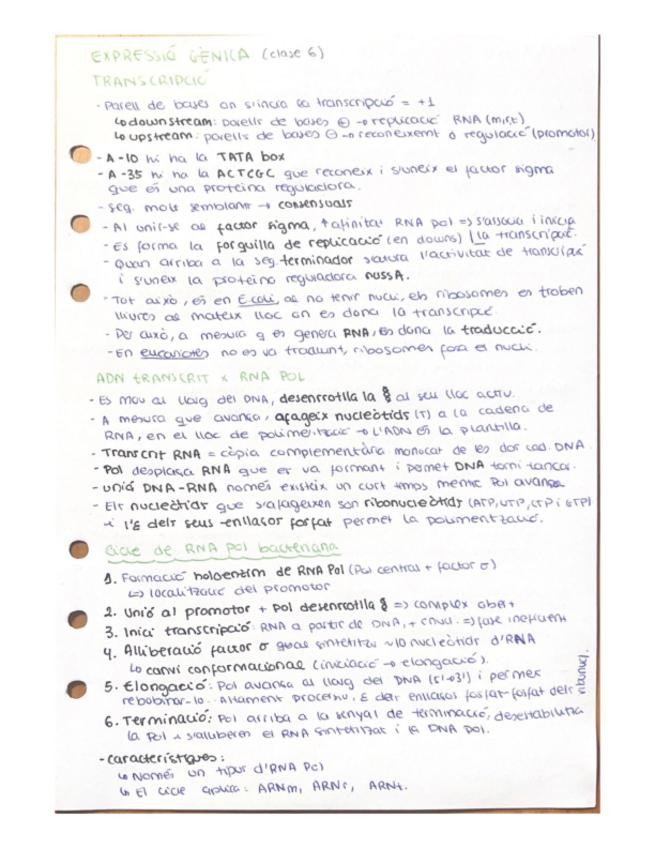 EXPRESSIÓ GÈNICA (clase 6)
TRANSCRIPCIÓ
- Parell de bases on s'inicia la transcripció = +1
↳ downstream: parells de bases ⊕ → replicació RNA (m,r,t)
↳ upstream: parells de bases ⊖ → reconeixement o regulació (promotor)
- A -10 hi ha la TATA box
- A -35 hi ha la ACTCGC que reconeix i s'uneix el factor sigma
que és una proteina reguladora.
- Seq. molt semblant → consensuals
- Al unir-se al factor sigma, ↑ afinitat RNA pol => s'associa i inicia
- Es forma la forquilla de replicació (en downs) la transcripció.
- Quan arriba a la seq. terminador s'atura l'activitat de transcripció
i s'uneix la proteina reguladora nussA.
- Tot això, és en E.coli, al no tenir nucli, els ribosomes es troben
lliures al mateix lloc on es dona la transcripció.
- Per això, a mesura q es genera RNA, es dona la traducció.
- En eucariotes no es va traduint, ribosomes fora el nucli.
ADN TRANSCRIT x RNA POL
- Es mou al llarg del DNA, desenrotlla la al seu lloc actiu.
- A mesura que avança, afageix nucleòtids (T) a la cadena de
RNA, en el lloc de polimerització → L'ADN és la plantilla.
- Transcrit RNA = còpia complementària monocat de les dos cad. DNA.
- Pol desplaça RNA que es va formant i permet DNA torni tancar.
- Unió DNA-RNA només existeix un curt temps mentre Pol avança
- Els nucleòtids que s'afageixen son ribonucleòtids (ATP, UTP, CTP i GTP)
i l'E dels seus enllaços fosfat permet la polimerització.
Cicle de RNA Pol bacteriana
1. Formació holoenzim de RNA Pol (Pol central + factor σ)
↳ localització del promotor
2. Unió al promotor + Pol desenrotlla => complex obert
3. Inici transcripció: RNA a partir de DNA, => fase ineficient
4. Alliberació factor σ quan sintetitza ~10 nucleòtids d'RNA
↳ canvi conformacional (iniciació → elongació).
5. Elongació: Pol avança al llarg del DNA (5'→3') i permet
rebobinar-lo. Altament processiu, E dels enllaços fosfat-fosfat dels ribonucl.
6. Terminació: Pol arriba a la senyal de terminació, desestabilitza
la Pol s'alliberen el RNA sintetitzat i la DNA pol.
- Característiques:
↳ Només un tipus d'RNA Pol
↳ El cicle aplica: ARNm, ARNr, ARNt.